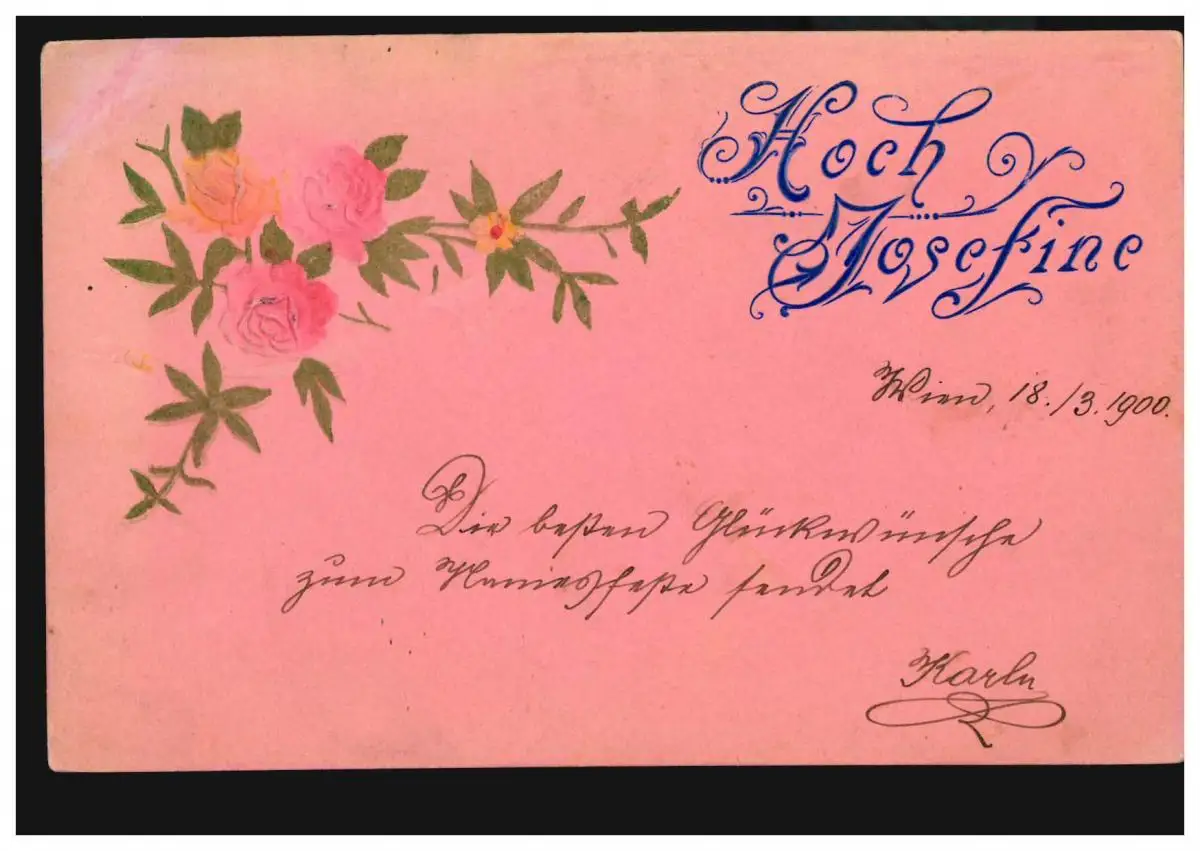 Hoch
Josefine
Wien, 18./3. 1900.
Die besten Glückwünsche
zum Namensfeste sendet